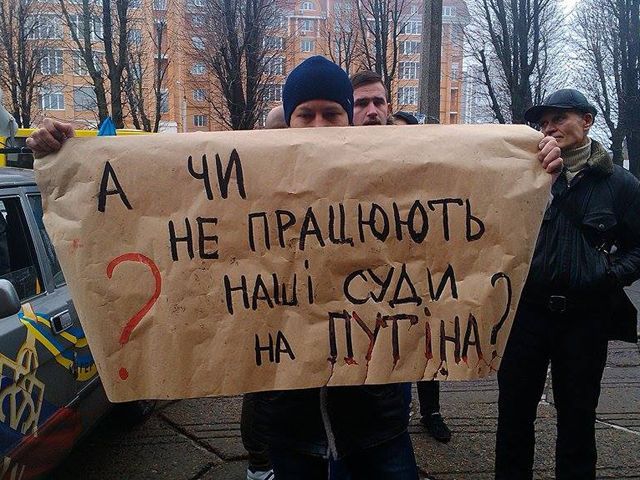 А ЧИ
НЕ ПРАЦЮЮТЬ
НАШІ СУДИ
? НА ПУТІНА?